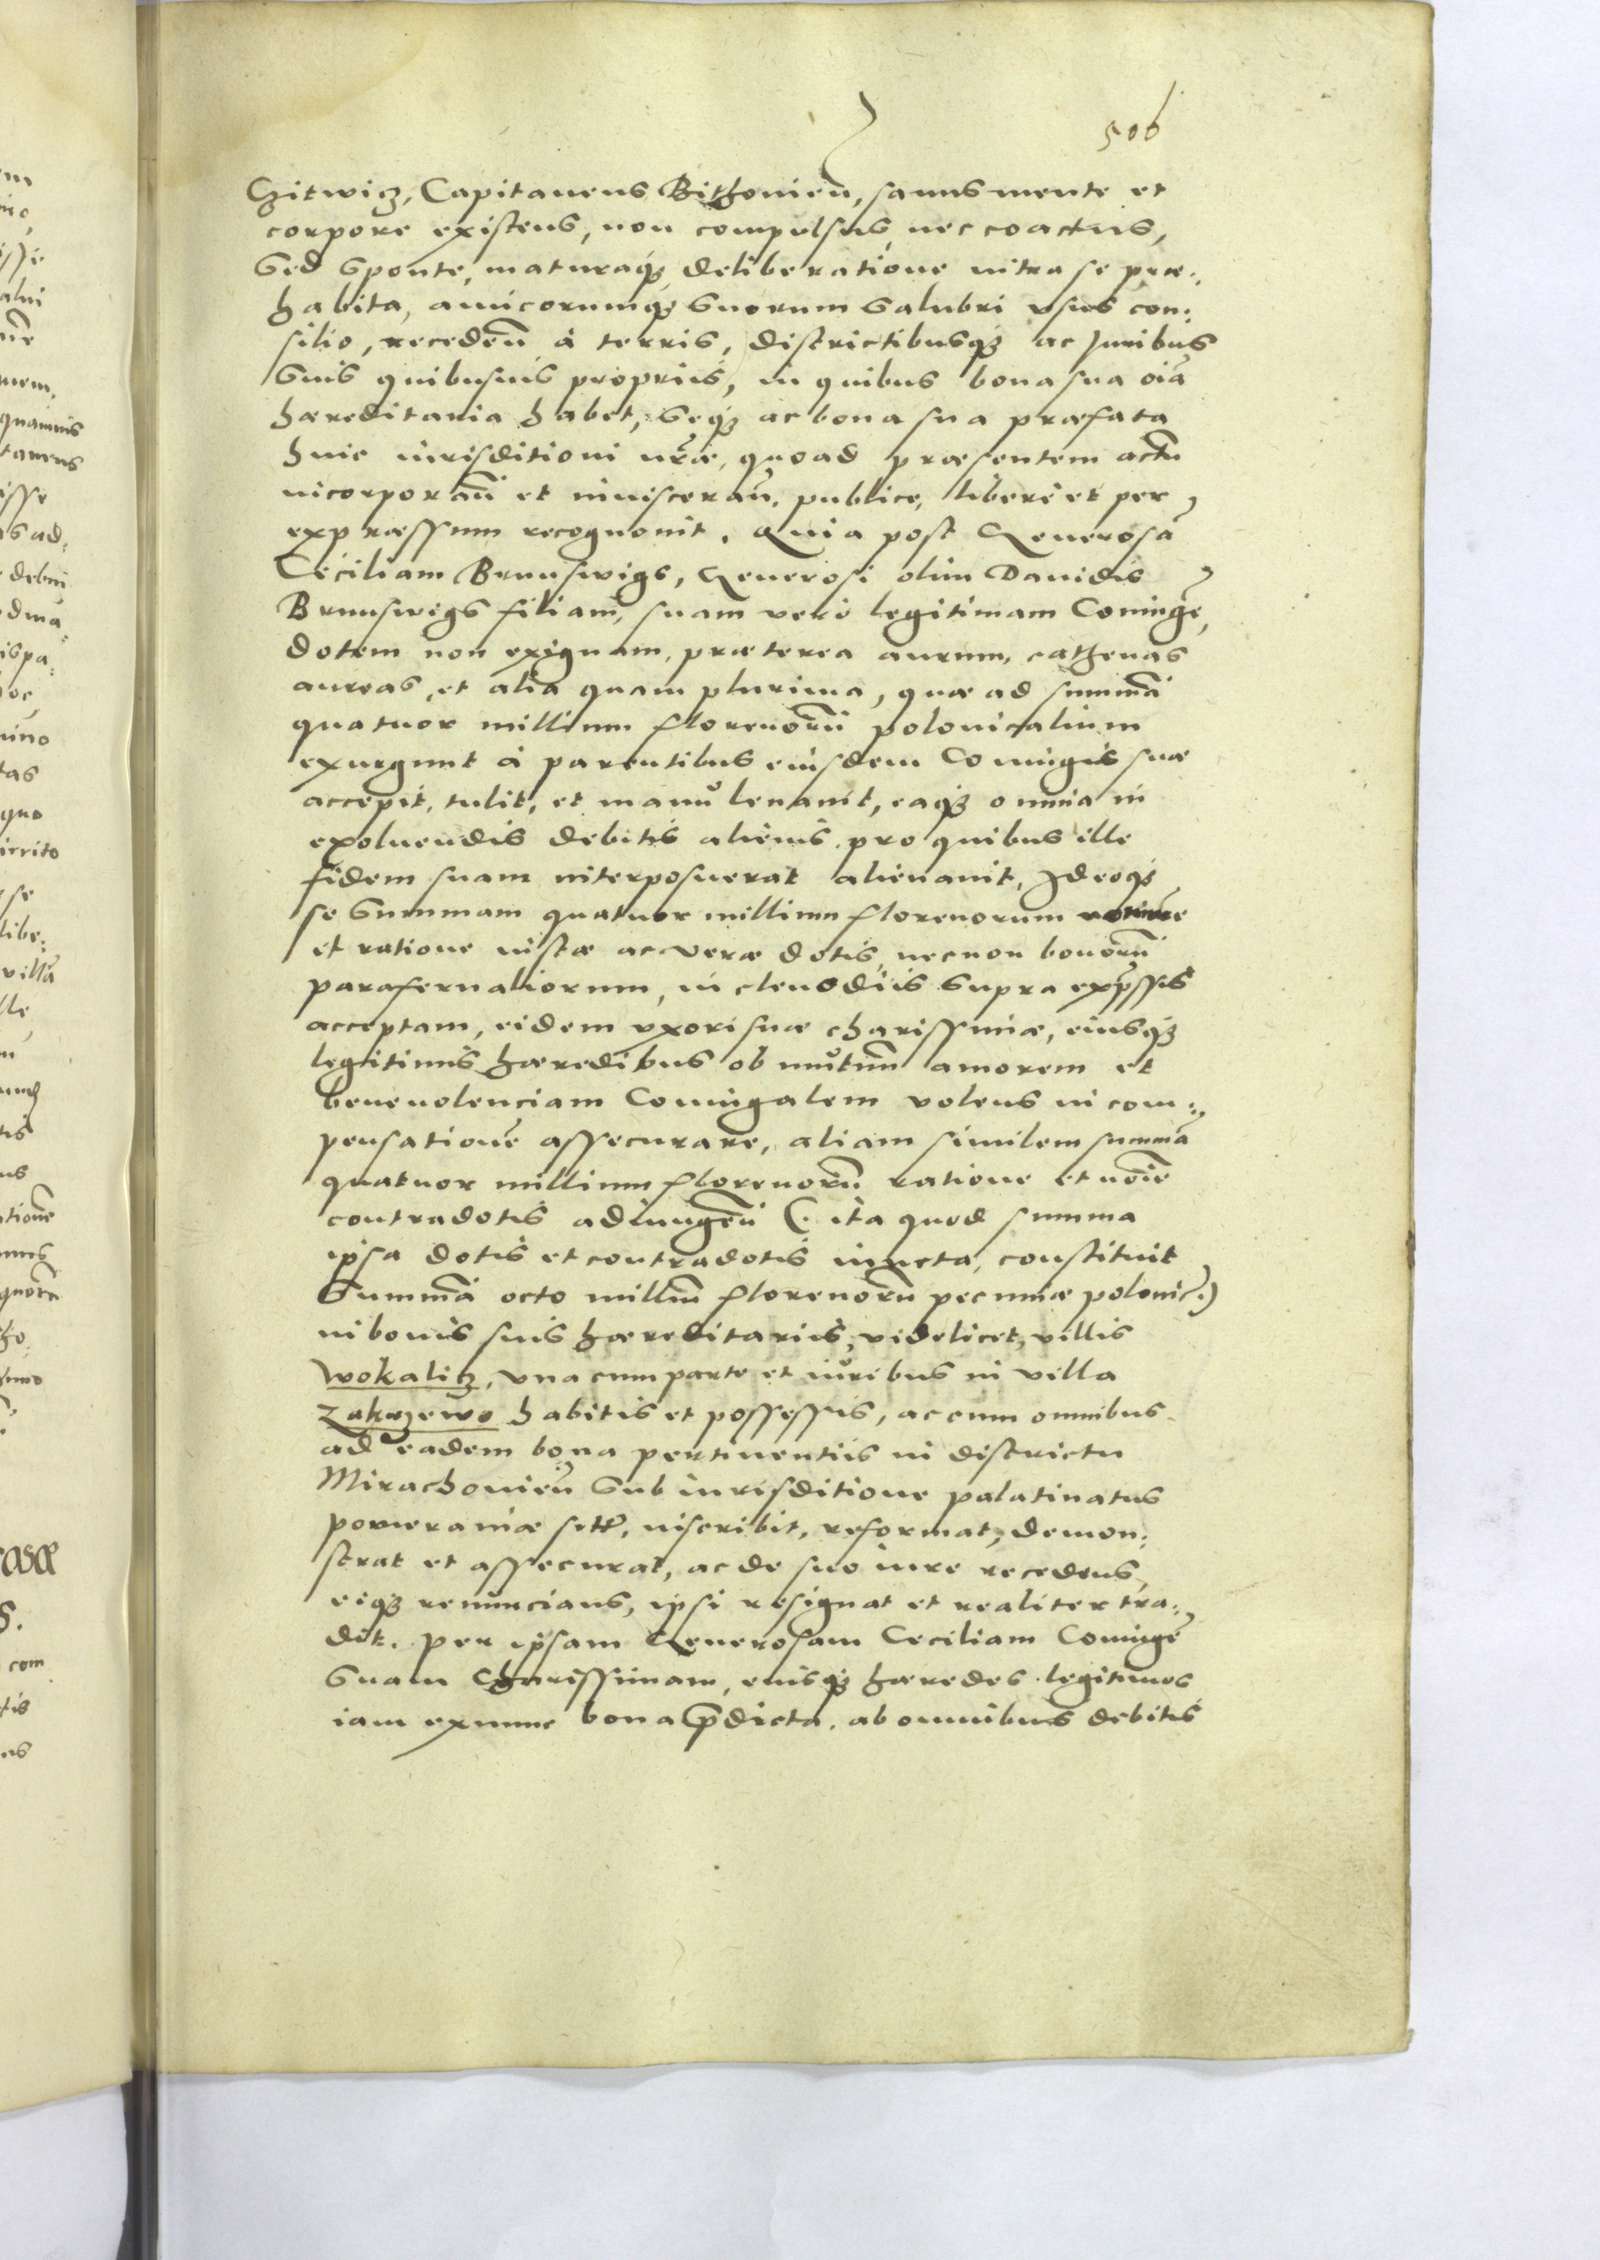 506
Gitwicz, Capitaneus Bithonien̄, sanus mente et
corpore existens, non compulsus, nec coactus,
Sed sponte, maturaq₃ deliberatione intra se præ:
habita, amicorumq₃ suorum salubri vsus con:
silio, receden̄ à terris, districtibusq₃ ac Juribus
suis quibusuis proprijs, in quibus bona sua oīa
hæreditaria habet, Seq₃ ac bona sua præfata
huic iurisditioni n̄ræ, quoad præsentem actū
incorporan̄ et inuisceran̄, publice, liberè et per
expræssum recognouit. Quia post Generosā
Ceciliam Brunswigs, Generosi olim Dauidis
Brunswigs filiam, suam verò legitimam Coniugē,
dotem non exiguam, præterea aurum, cathenas
aureas, et alia quam plurima, quæ ad summā
quatuor millium florenorū polonicalium
exurgunt à parentibus eiusdem Coniugis suæ
accepit, tulit, et manu leuauit, eaq₃ omnia in
exoluendis debitis alienis pro quibus ille
fidem suam interposuerat alienauit, Ideoq₃
se Summam quatuor millium florenorum
et ratione iustæ ac veræ dotis, necnon bonorū
parafernaliorum, in clenodiis supra exp̄ssis
acceptam, eidem vxori suæ charissimæ, eiusq₃
legitimis hæredibus ob mutuum amorem et
beneuolenciam Coniugalem volens in com:
pensationē assecurare, aliam similem summā
quatuor millium florenorū ratione et noīe
contradotis adiungen̄ (: ita quod summa
ipsa dotis et contradotis iuncta, constituit
Summā octo milliū florenorū pecuniæ polonic:)
in bonis suis hæreditariis, videlicet, villis
Wokalicz, vna cum parte et iuribus in villa
Zakrzewo habitis et possessis, ac cum omnibus
ad eadem bona pertinentiis in districtu
Mirachonien̄ sub iurisditione palatinatus
pomeraniæ sitis, inscribit, reformat, demon:
strat et assecurat, ac de suo iure recedens,
eiq₃ renuncians, ipsi resignat et realiter tra:
dit. Per ipsam Generosam Ceciliam Coniugē
suam Charissimam, eiusq₃ hæredes legitimos
iam exnunc bona p̄dicta, ab omnibus debitis